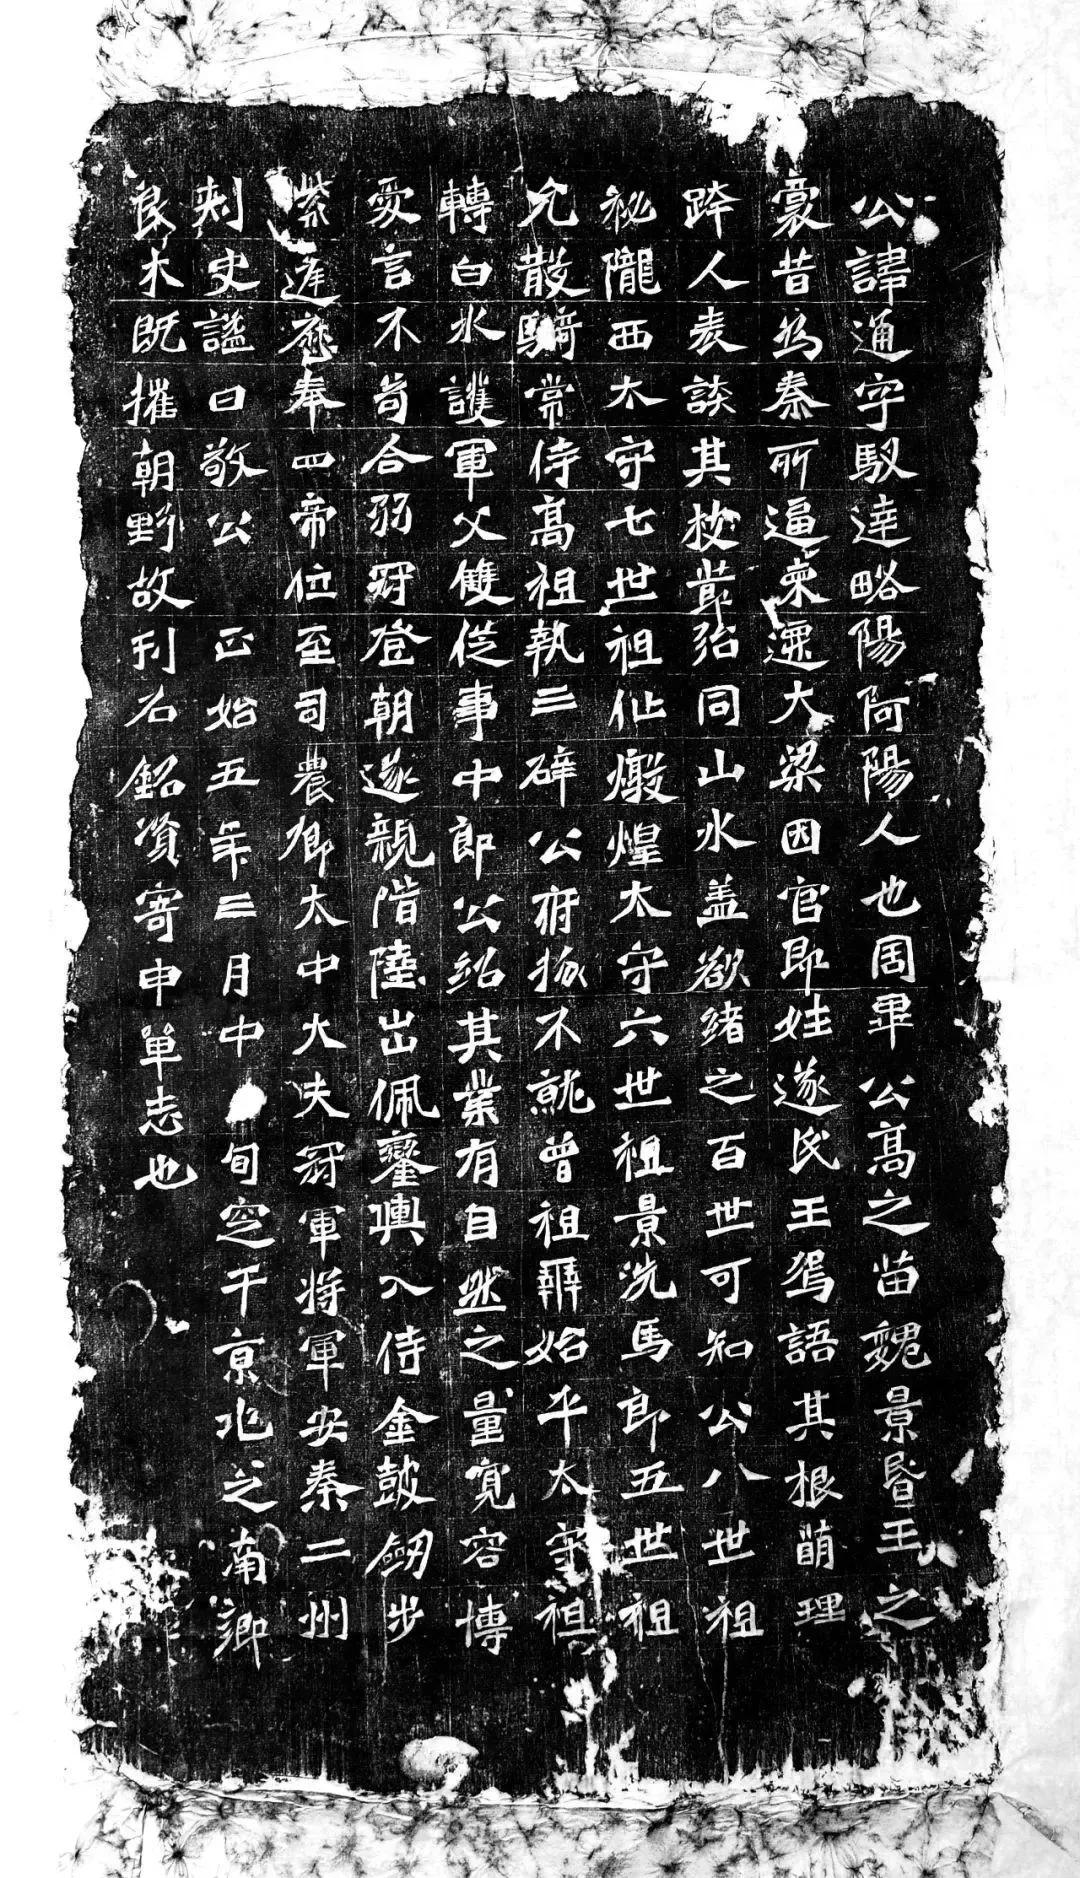 公諱通字馭達略陽阿陽人也周畢公高之苗魏景昬王之
豪昔為秦所逼東遷大梁因官即姓遂氏王焉語其根萌理
跨人表談其枝葉殆同山水盖欲緒之百世可知公八世祖
祕隴西太守七世祖仳燉煌太守六世祖景洗馬郎五世祖
允散騎常侍高祖執三辟公府掾不就曾祖彝始平太守祖
轉白水護軍父雙從事中郎公紹其業有自然之量寬容博
愛言不苟合弱冠登朝遂親階陛出佩鑾輿入侍金鼓劒步
紫遲歷奉四帝位至司農卿太中大夫冠軍將軍安秦二州
刺史謚曰敬公 正始五年二月中旬窆于京兆之南鄉
良木既摧朝野故刊石銘資寄申單志也